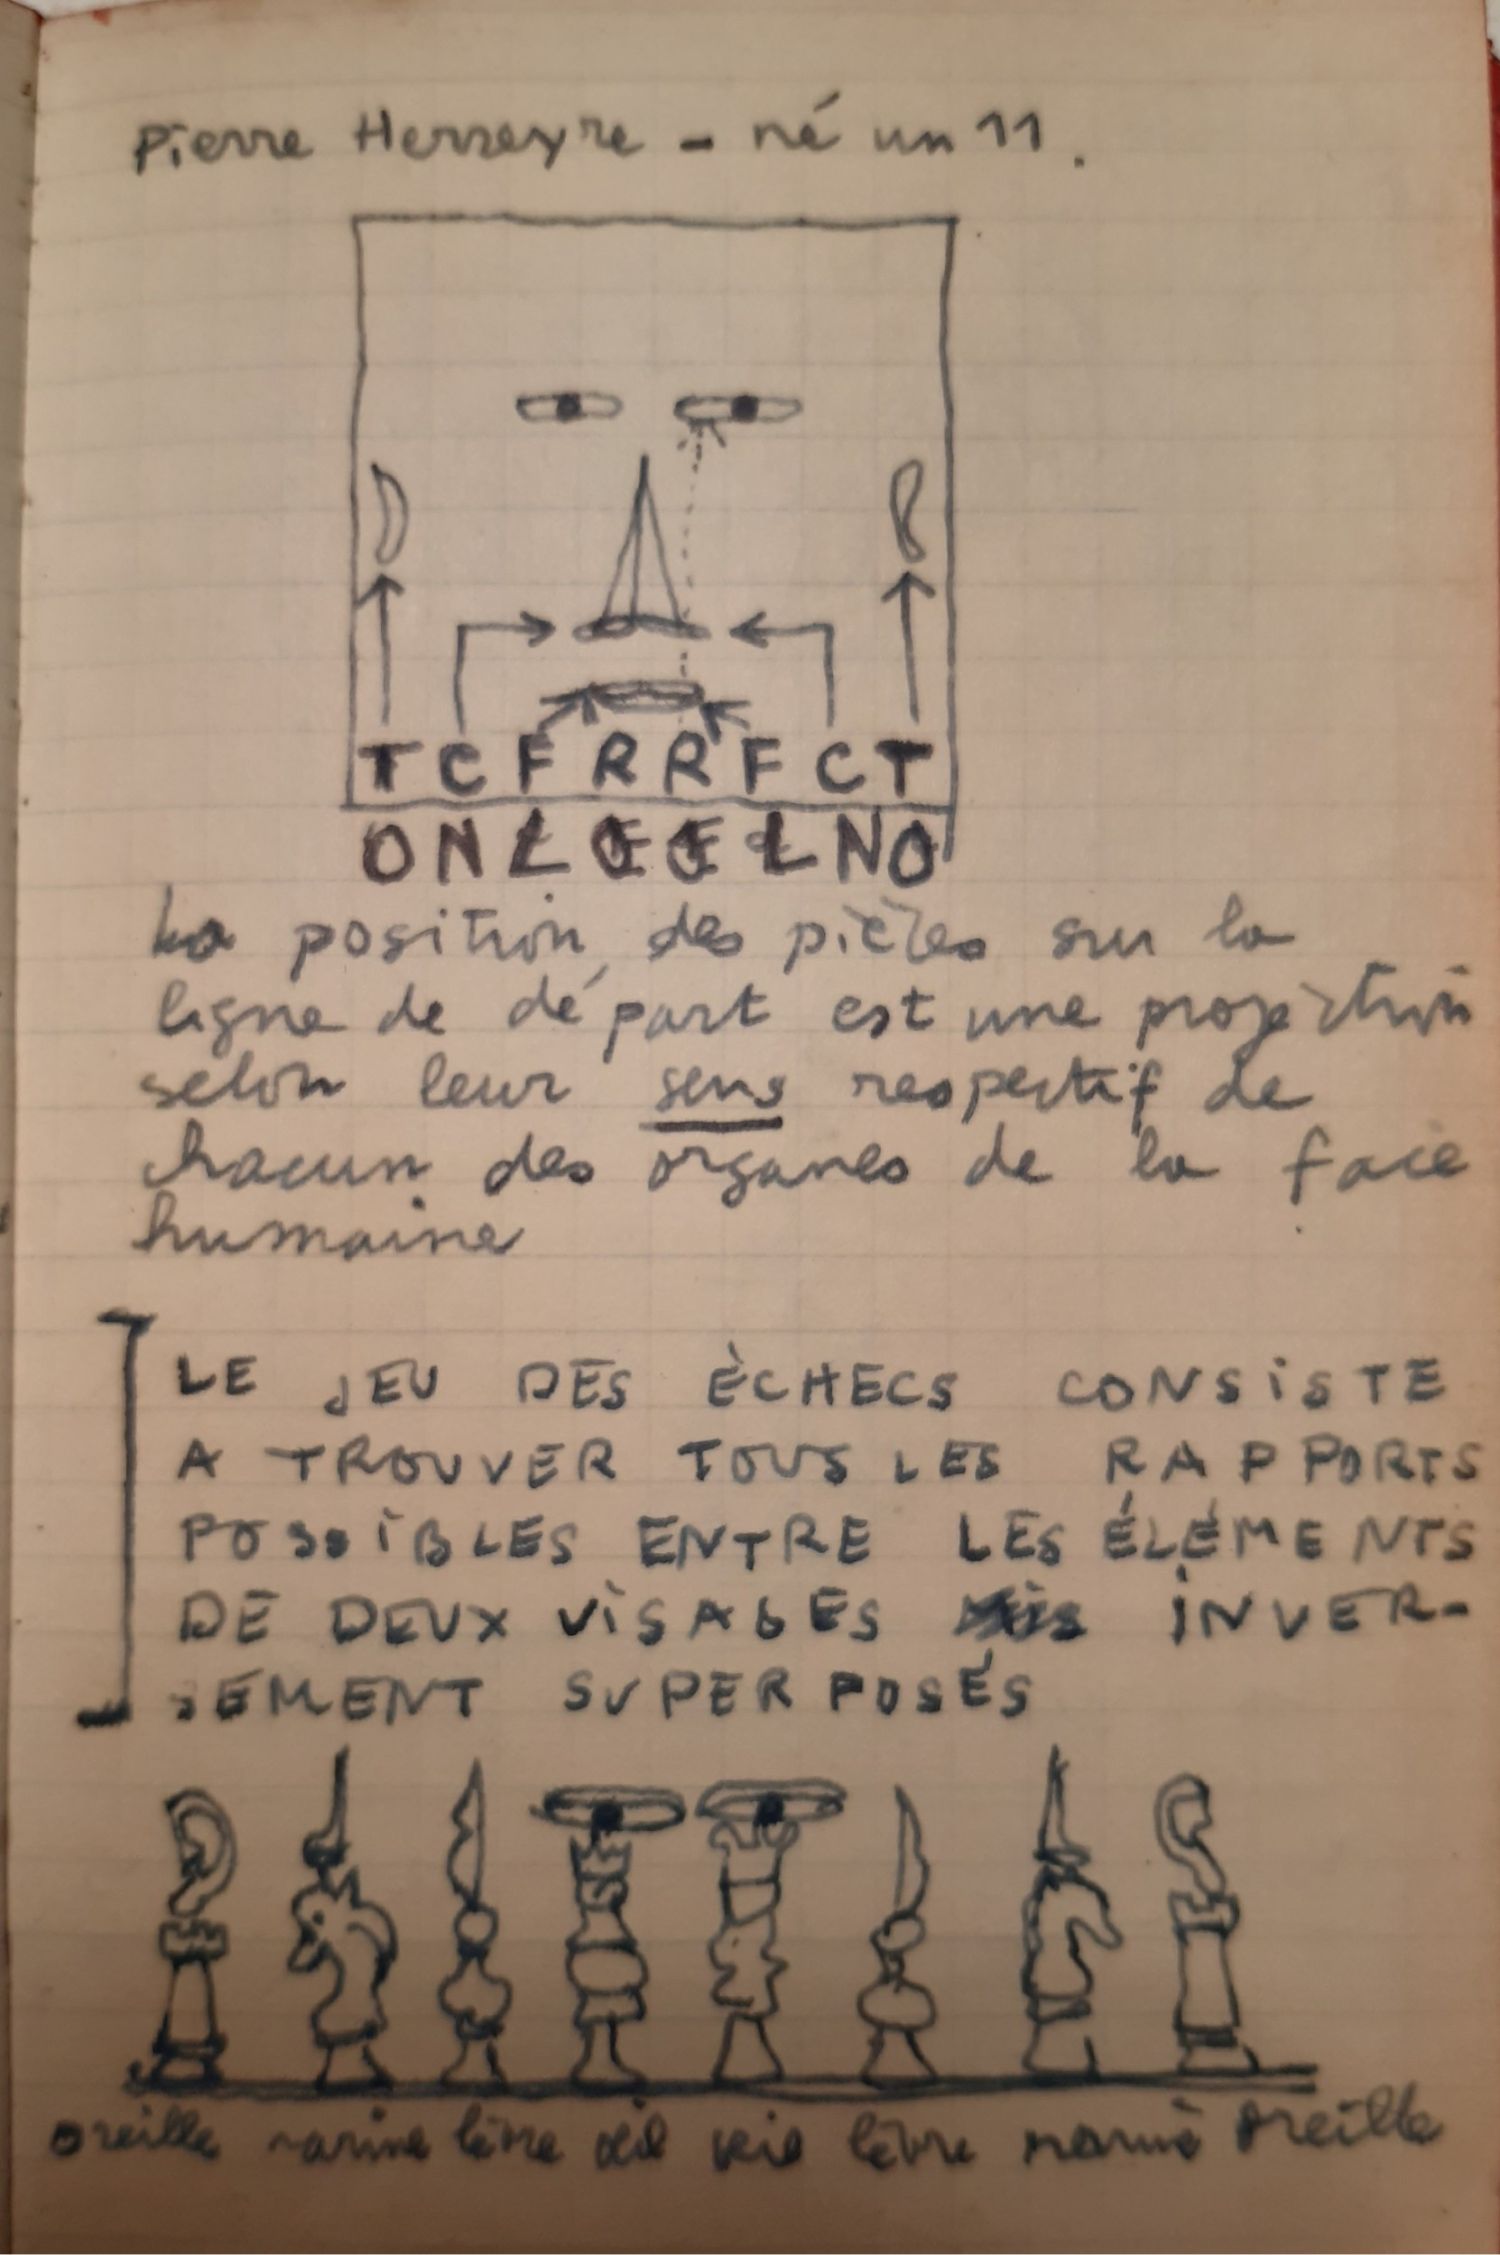 Pierre Herreyre - né un 11.
T C F R R F C T
O N L Œ Œ L N O
La position des pièces sur la
ligne de départ est une projection
selon leur sens respectif de
chacun des organes de la face
humaine
LE JEU DES ÈCHECS CONSISTE
A TROUVER TOUS LES RAPPORTS
POSSIBLES ENTRE LES ÉLÉMENTS
DE DEUX VISAGES INVER-
SEMENT SUPERPOSÉS
oreille narine lèvre œil lèvre narine oreille